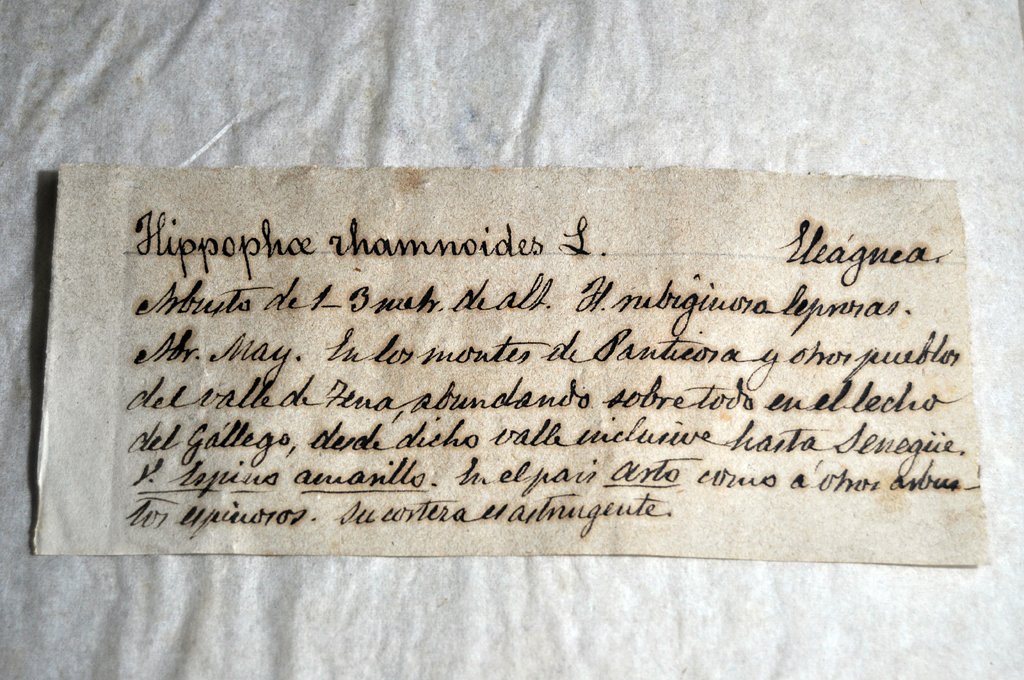 Hippophæ rhamnoides L. Eleágnea.
Arbusto de 1–3 metr. de alt. H. rubiginosa leprosas.
Abr. May. En los montes de Panticosa y otros pueblos
del valle de Tena, abundando sobre todo en el lecho
del Gállego, desde dicho valle inclusive hasta Senegüe.
V. Espino amarillo. En el pais Arto como á otros arbus-
tos espinosos. Su corteza es astringente.